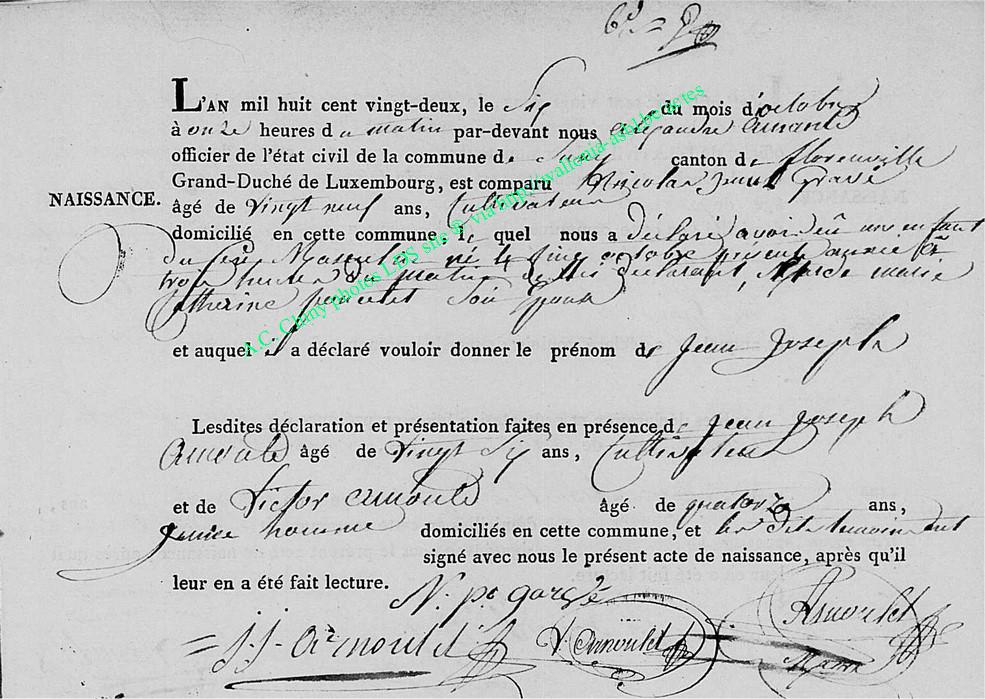 L'AN mil huit cent vingt-deux, le Six du mois d'octobre
à onze heures du matin par-devant nous alexandre
officier de l'état civil de la commune de canton de florenville
Grand-Duché de Luxembourg, est comparu Nicolas
NAISSANCE.
âgé de vingt neuf ans, Cultivateur
domicilié en cette commune, le quel nous a déclaré avoir eû un enfant
du Sexe Masculin né le cinq octobre présente année
trois heures du matin de lui déclarant, et de marie
Catherine Son épouse
et auquel il a déclaré vouloir donner le prénom de Jean Joseph
Lesdites déclaration et présentation faites en présence de Jean Joseph
âgé de vingt Six ans, Cultivateur
et de Victor âgé de quatorze ans,
jeune homme domiciliés en cette commune, et les dits témoins ont
signé avec nous le présent acte de naissance, après qu'il
leur en a été fait lecture.
A.C. Chiny photos LDS site © via http://wallonia-asbl.be/actes